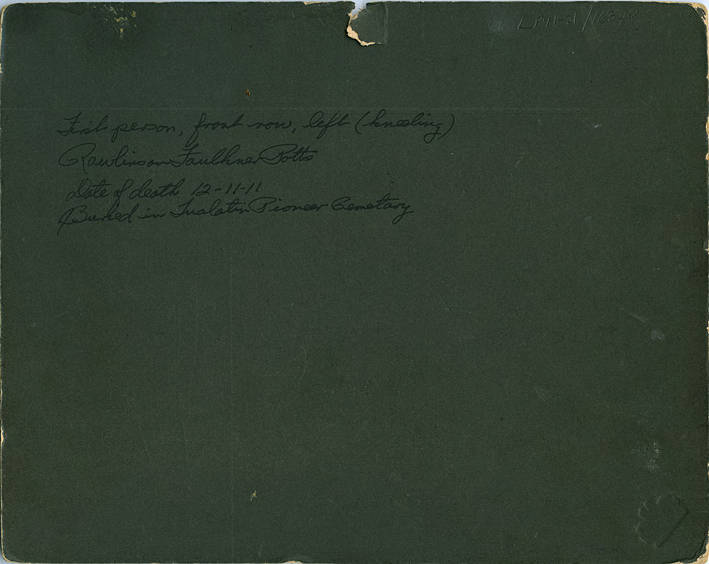 First person, front row, left (kneeling)
Rawlinson Faulkner Potts
Date of death 12-11-11
Buried in Tualatin Pioneer Cemetary